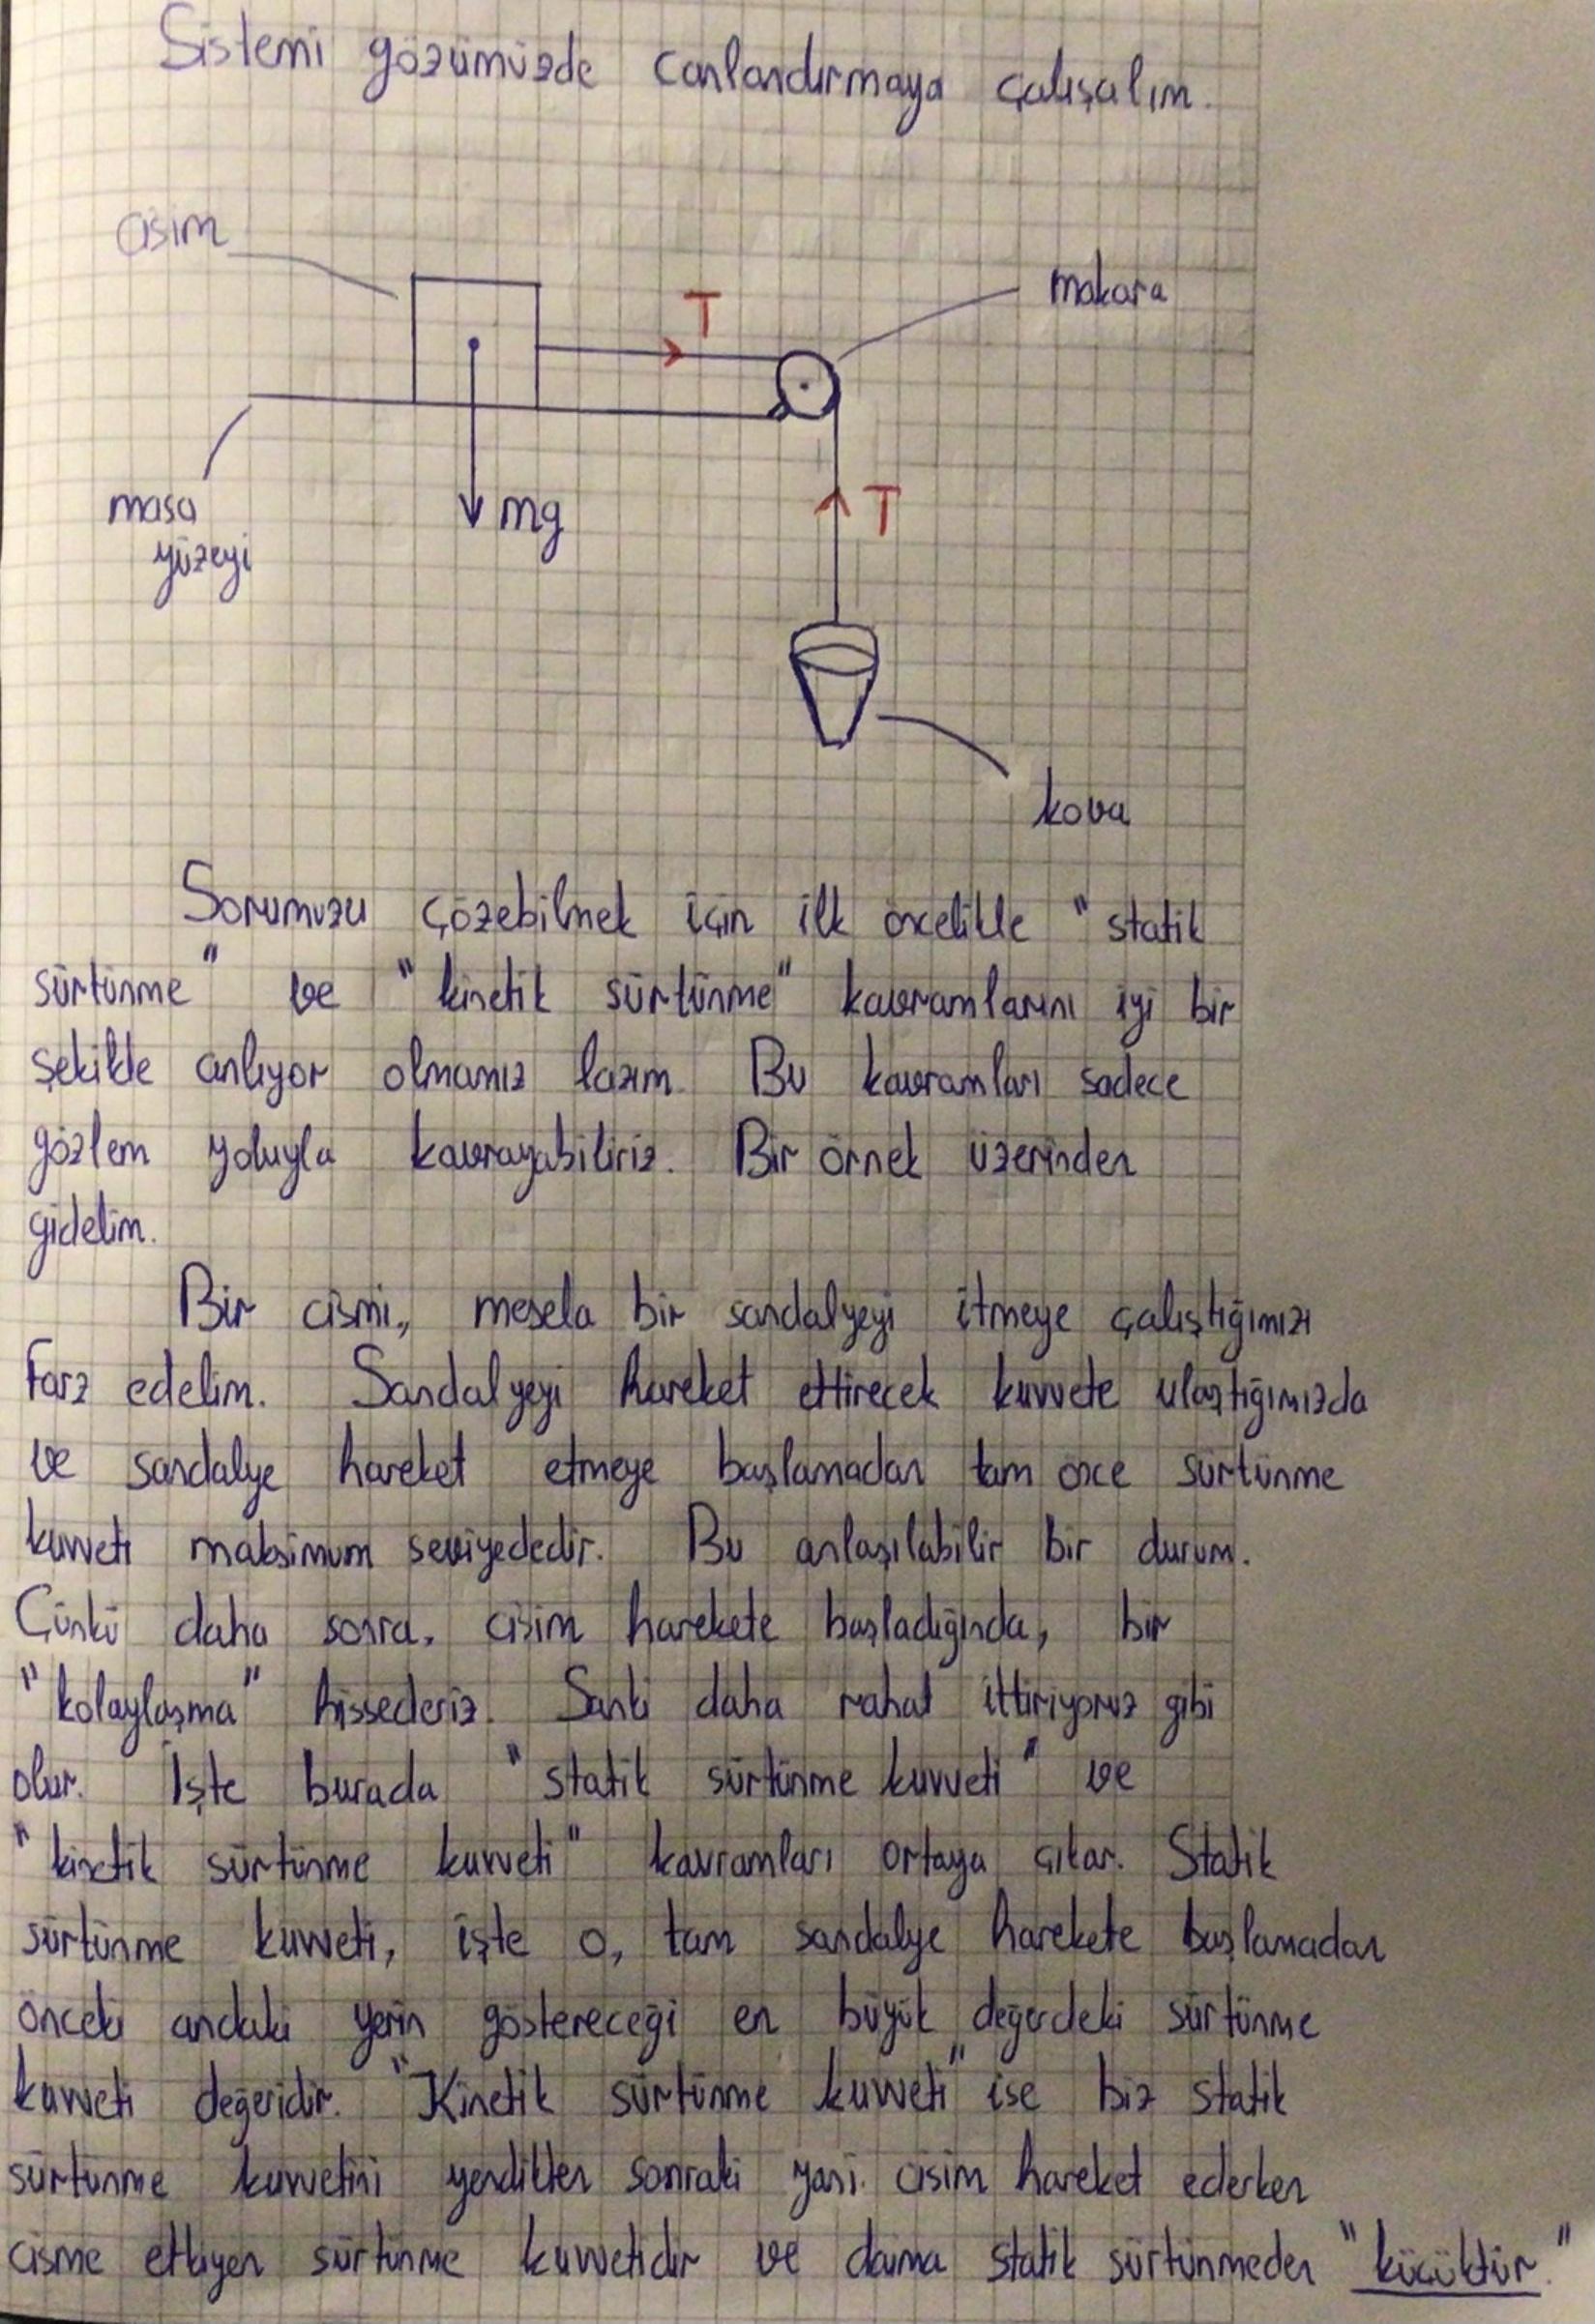 Sistemi gözümüzde canlandırmaya çalışalım.
cisim
T
makara
masa
yüzeyi
mg
T
kova
Sorumuzu çözebilmek için ilk öncelikle "statik
sürtünme" ve "kinetik sürtünme" kavramlarını iyi bir
şekilde anlıyor olmamız lazım. Bu kavramları sadece
gözlem yoluyla kavrayabiliriz. Bir örnek üzerinden
gidelim.
Bir cismi, mesela bir sandalyeyi itmeye çalıştığımızı
Farz edelim. Sandalyeyi hareket ettirecek kuvvete ulaştığımızda
ve sandalye hareket etmeye başlamadan tam önce sürtünme
kuvveti maksimum seviyededir. Bu anlaşılabilir bir durum.
Çünkü daha sonra, cisim harekete başladığında, bir
"kolaylaşma" hissederiz. Sanki daha rahat ittiriyoruz gibi
olur. İşte burada "statik sürtünme kuvveti" ve
"kinetik sürtünme kuvveti" kavramları ortaya çıkar. Statik
sürtünme kuvveti, işte o, tam sandalye harekete başlamadan
önceki andaki yerin göstereceği en büyük değerdeki sürtünme
kuvveti değeridir. "Kinetik sürtünme kuvveti" ise biz statik
sürtünme kuvvetini yendikten sonraki yani cisim hareket ederken
cisme etkiyen sürtünme kuvvetidir ve daima statik sürtünmeden "küçüktür."